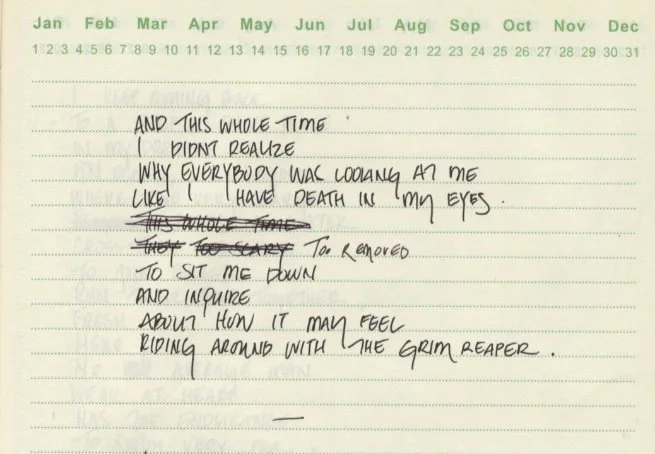 Jan Feb Mar Apr May Jun Jul Aug Sep Oct Nov Dec
1 2 3 4 5 6 7 8 9 10 11 12 13 14 15 16 17 18 19 20 21 22 23 24 25 26 27 28 29 30 31
AND THIS WHOLE TIME
I DIDNT REALIZE
WHY EVERYBODY WAS LOOKING AT ME
LIKE I HAVE DEATH IN MY EYES.
THIS WHOLE TIME
THEY TOO SCARY Too REMOVED
TO SIT ME DOWN
AND INQUIRE
ABOUT HOW IT MAY FEEL
RIDING AROUND WITH THE GRIM REAPER.